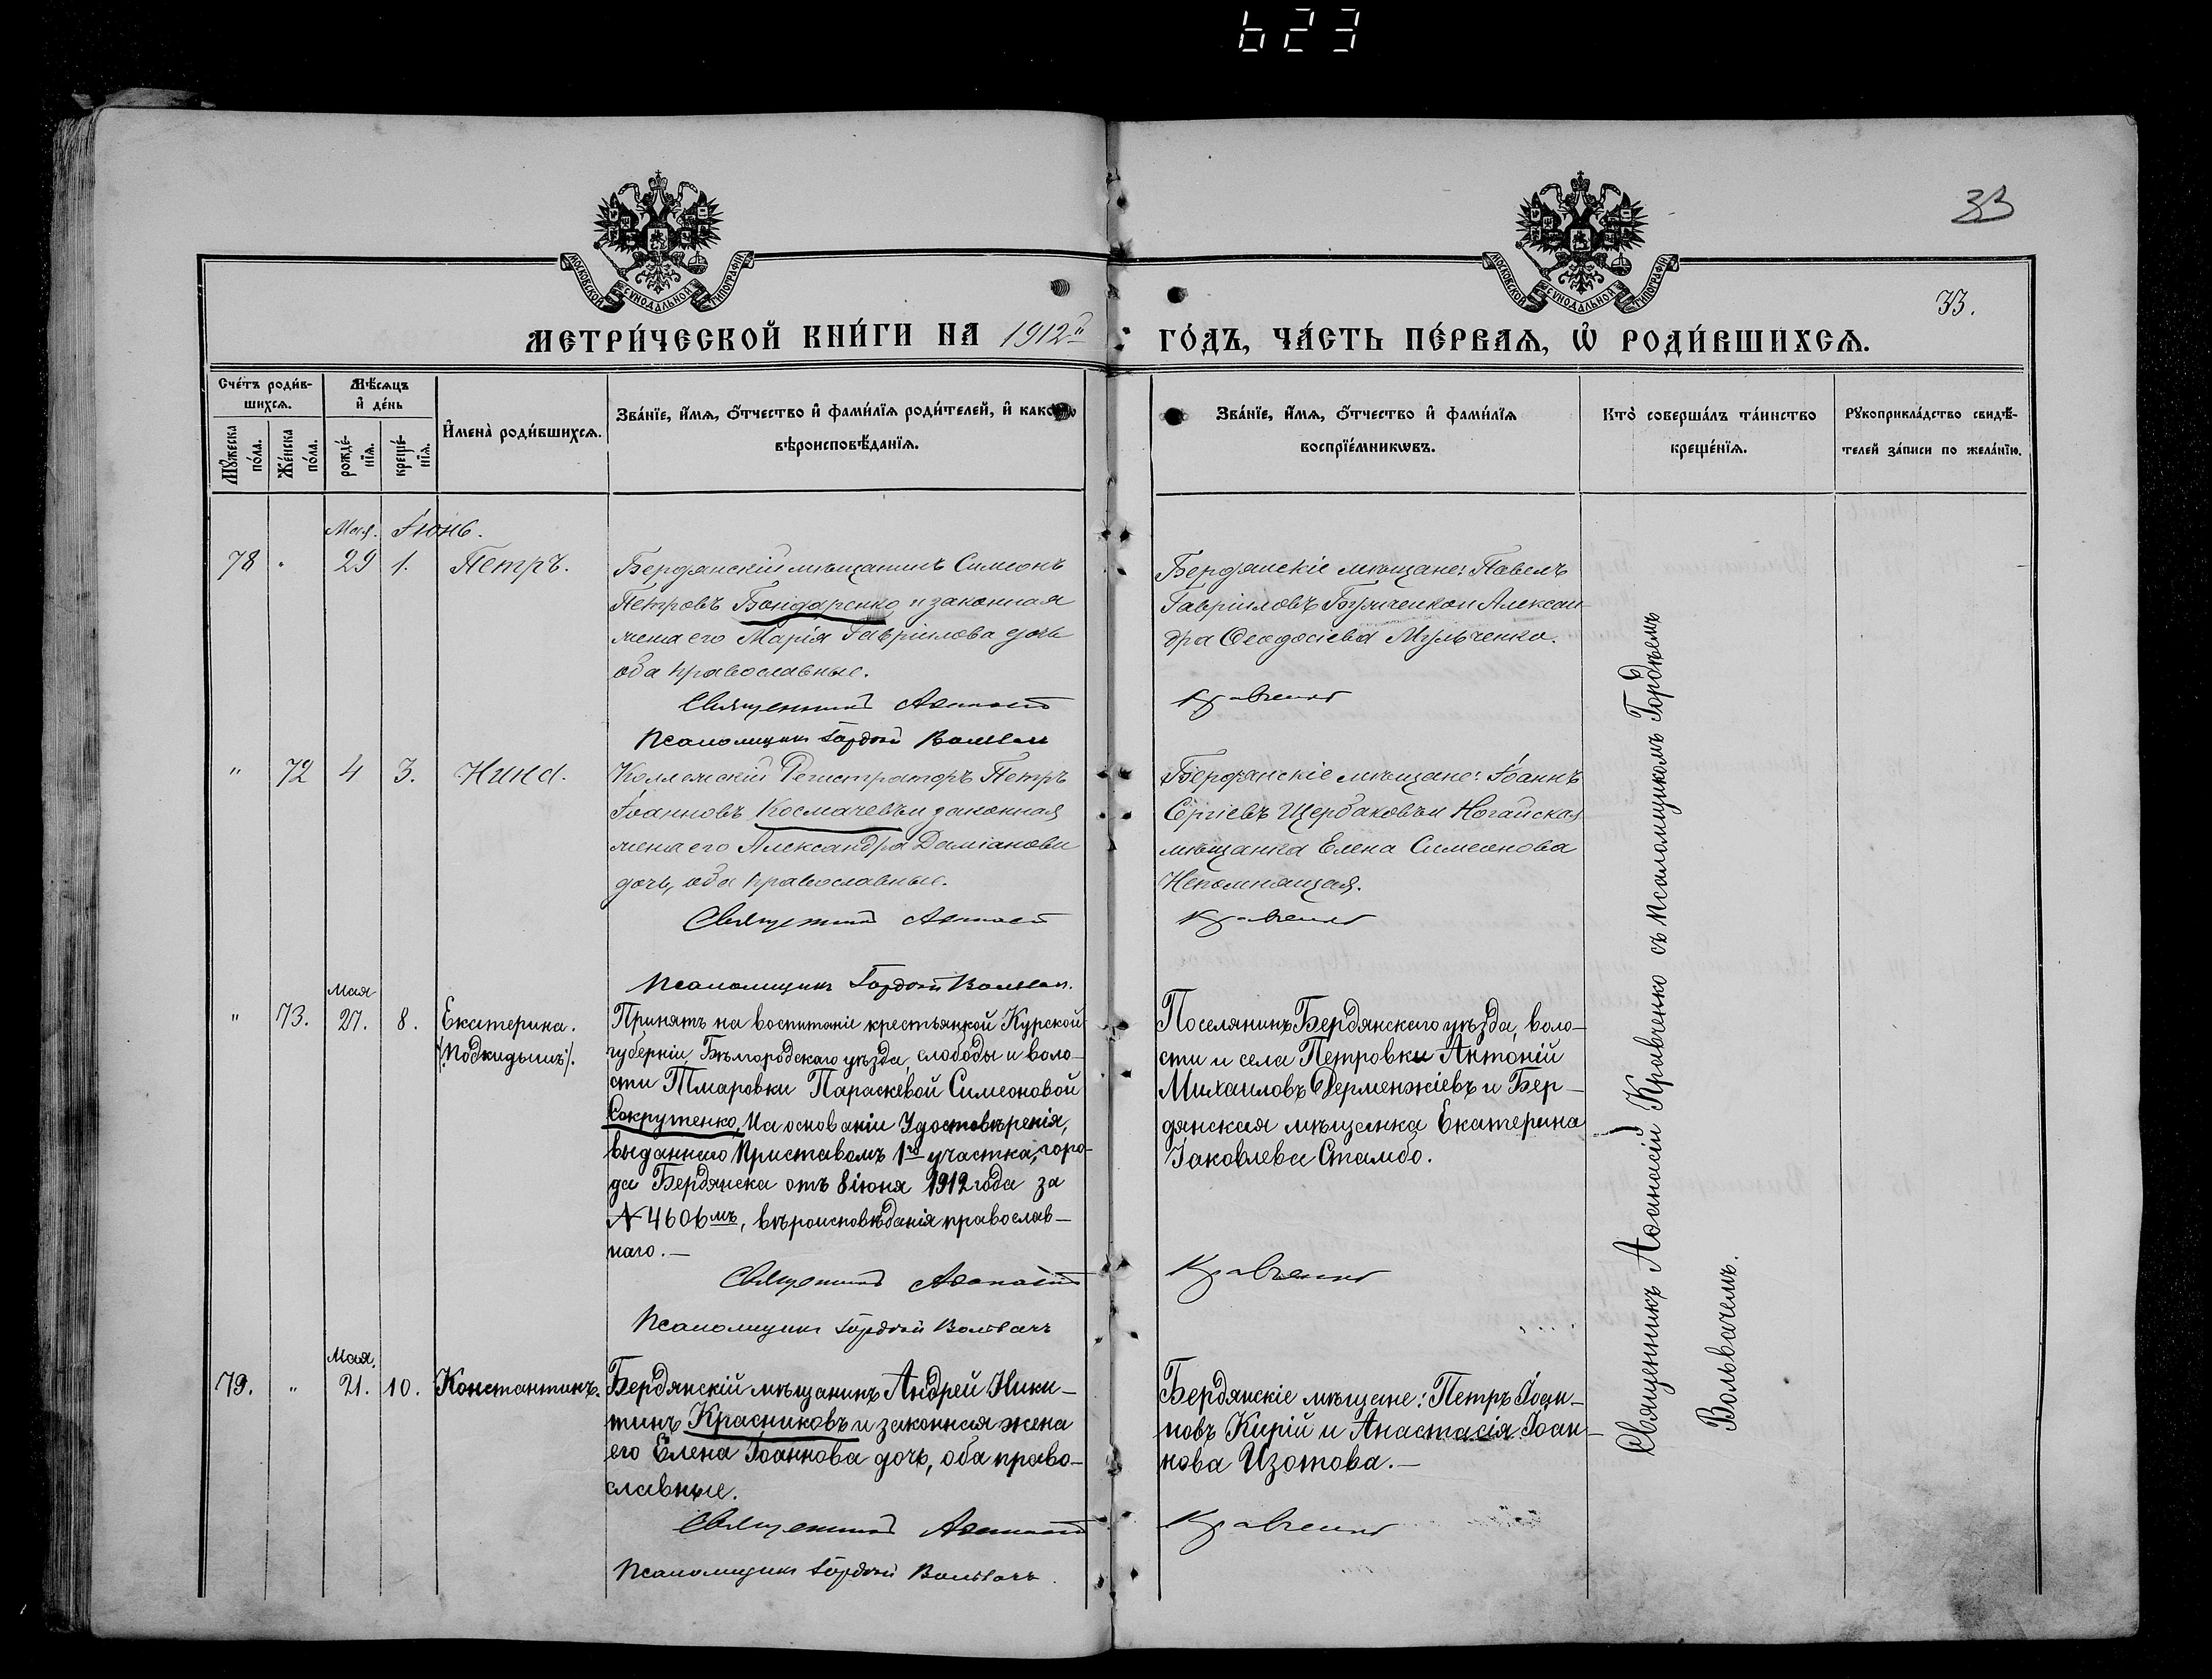 623
33
МОСКОВСКОЙ СѴНОДАЛЬНОЙ ТИПОГРАФІИ
МОСКОВСКОЙ СѴНОДАЛЬНОЙ ТИПОГРАФІИ
33.
МЕТРИ́ЧЕСКОЙ КНИ́ГИ НА 1912й
ГО́ДЪ, ЧА́СТЬ ПЕ́РВАѦ, Ѡ҆ РОДИ́ВШИХСѦ.
Сче́тъ роди́в-
шихсѧ.
Мꙋ́жеска по́ла.
Же́нска по́ла.
Мѣ́сѧцъ
и҆ де́нь
рожде́-нїѧ.
креще́-нїѧ.
И҆мена̀ роди́вшихсѧ.
Зва́нїе, и҆́мѧ, ѻ҆́тчество и҆ фами́лїѧ роди́телей, и҆ како́гѡ
вѣроисповѣ́данїѧ.
Зва́нїе, и҆́мѧ, ѻ҆́тчество и҆ фами́лїѧ
воспрїе́мникѡвъ.
Кто̀ соверша́лъ та́инство
креще́нїѧ.
Рꙋкоприкла́дство свидѣ́-
телей за́писи по жела́нїю.
Мая. Іюнь.
78 " 29 1. Петръ.
Бердянскій мѣщанинъ Симеонъ
Петровъ Бондаренко и законная
жена его Марія Гавріилова дочь
оба православные.
Священникъ Аѳанасій
Псаломщикъ Гордѣй Вольвачъ
Бердянскіе мѣщане: Павелъ
Гавріиловъ и Алексан-
дра Ѳеодосіева Мульченко.
Кравченко
" 72 4 3. Нина.
Коллежскій Регистраторъ Петръ
Іоанновъ Космачевъ и законная
жена его Александра Даміанова
дочь, оба православные.
Священникъ Аѳанасій
Псаломщикъ Гордѣй Вольвачъ.
Бердянскіе мѣщане: Іоаннъ
Сергіевъ Щербаковъ и Ногайская
мѣщанка Елена Симеонова
Непомнящая.
Кравченко
Мая
" 73. 27. 8. Екатерина.
/:Подкидышъ:/.
Принятъ на воспитаніе крестьянкой Курской
губерніи, Бѣлгородскаго уѣзда, слободы и воло-
сти Тмаровки Параскевой Симеоновой
Сокрутенко, на основаніи Удостовѣренія,
выданнаго Приставомъ 1го участка, горо-
да Бердянска отъ 8 іюня 1912 года за
№ 4606мъ, вѣроисповѣданія православ-
наго.—
Священникъ Аѳанасій
Псаломщикъ Гордѣй Вольвачъ
Поселянинъ Бердянскаго уѣзда, воло-
сти и села Петровки Антоній
Михаиловъ Дерменжіевъ и Бер-
дянская мѣщанка Екатерина
Іаковлева Стамбо.
Кравченко
Мая.
79. " 21. 10. Константинъ.
Бердянскій мѣщанинъ Андрей Ники-
тинъ Красниковъ и законная жена
его Елена Іоаннова дочь, оба право-
славные.
Священникъ Аѳанасій
Псаломщикъ Гордѣй Вольвачъ.
Бердянскіе мѣщане: Петръ
новъ Кирій и Анастасія Іоан-
нова Изотова.—
Кравченко
Священникъ Аѳанасій Кравченко съ псаломщикомъ Гордѣемъ
Вольвачемъ.